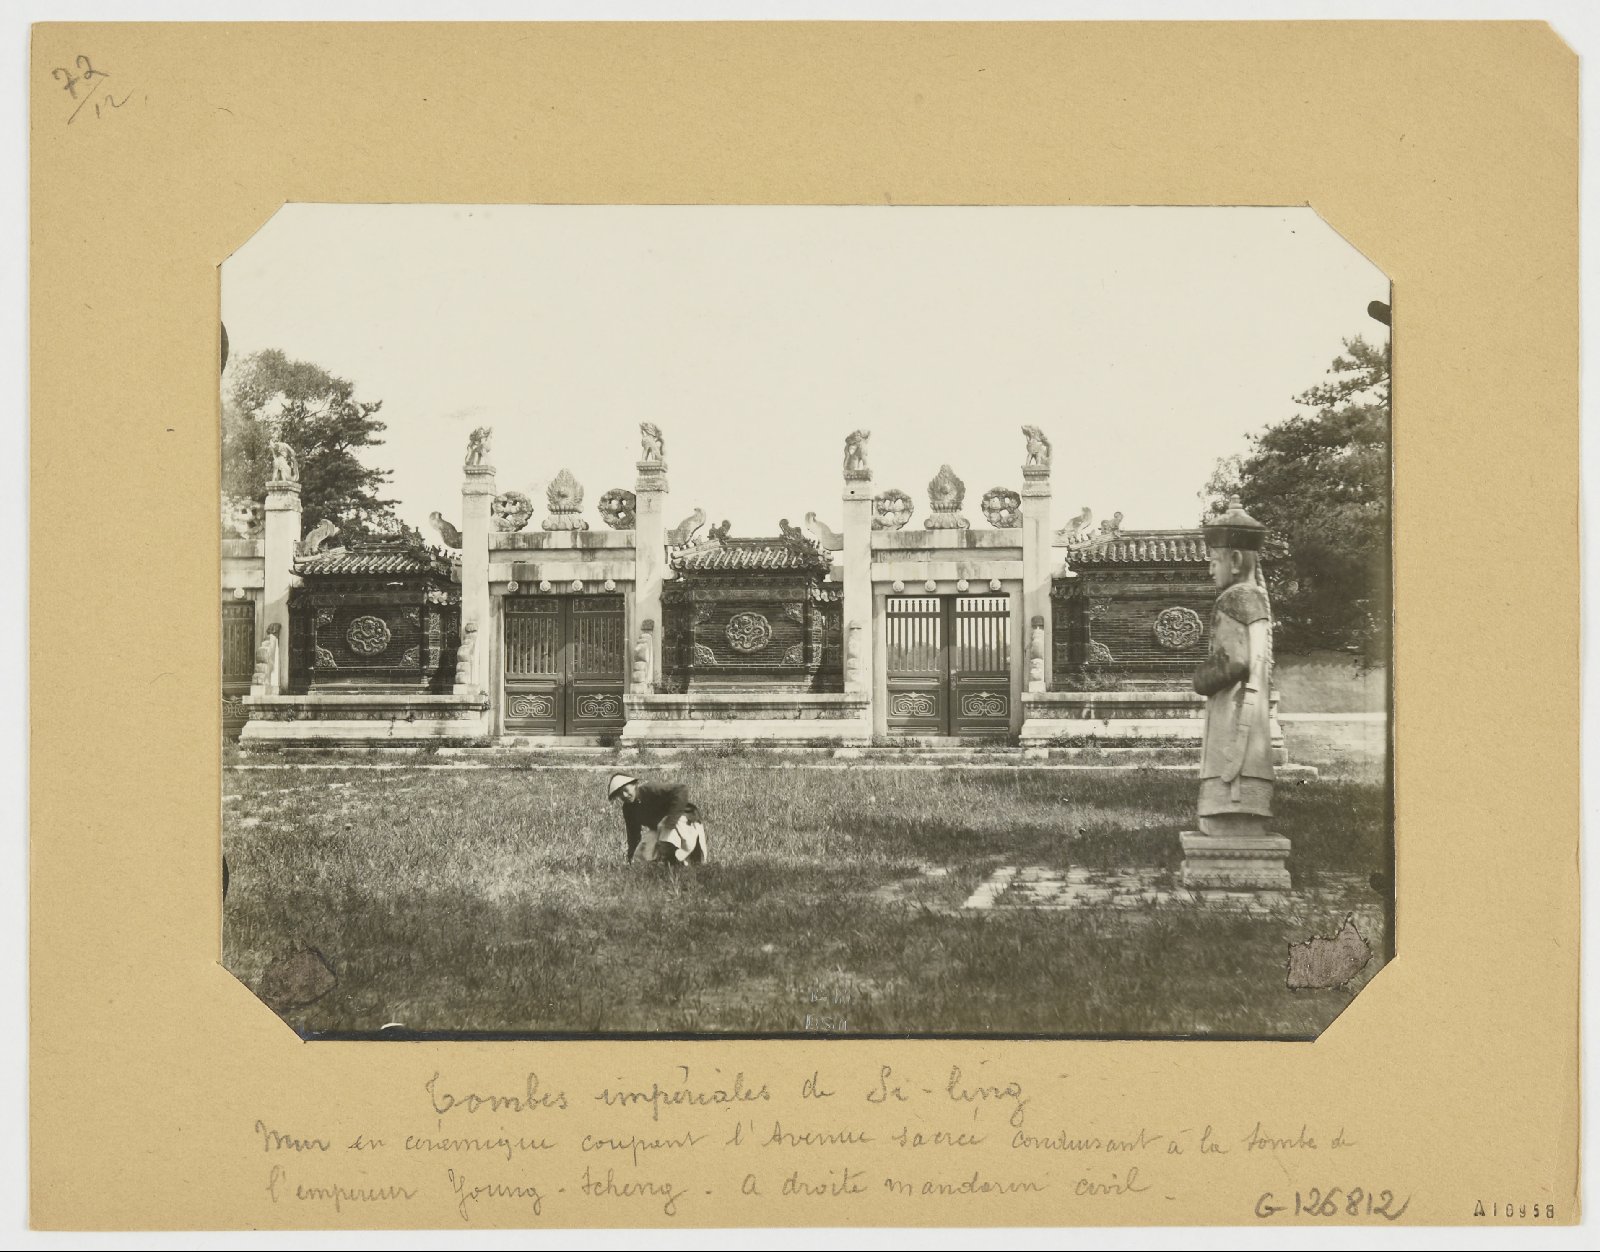 72
/12
Tombes impériales de Si-ling
Mur en céramique coupant l'Avenue sacrée conduisant à la tombe de
l'empereur Young-tcheng. A droite mandarin civil.
G-126812
A10958